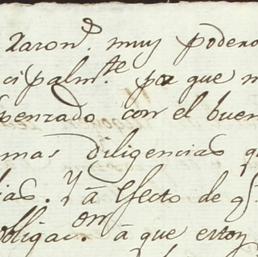 Xaron.d muy podero
cipalm.te pa que m
penzado con el buen
mas diligencias q
ias. Y â efecto de q.
obligac.on â que estoy